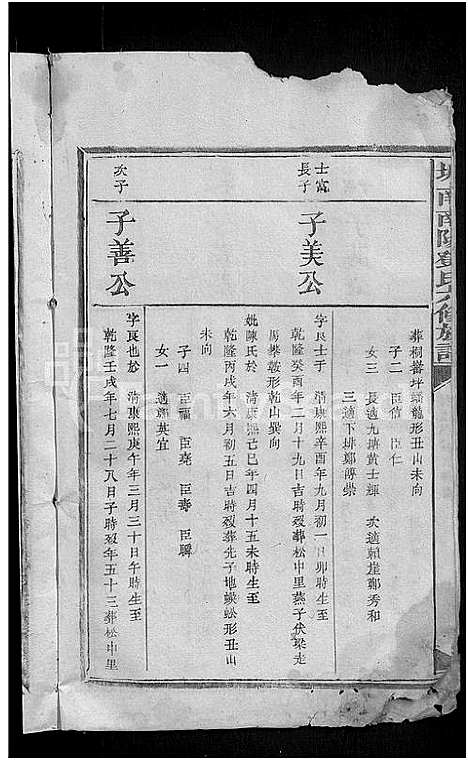 南南陽鄧氏六修族譜
葬桐樹坪蟠龍形丑山未向
子二 臣信 臣仁
女三 長適九塘黃士輝 次適賴崖鄭秀和
三適下排鄭傳崇
士富
長子
子美公
字良士于 清康熙辛酉年九月初一日卯時生至
乾隆癸酉年二月十九日吉時歿葬松中里燕子伏梁走
馬攀鞍形乾山巽向
妣陳氏於 清康熙己巳年四月十五未時生至
乾隆丙戌年六月初五日吉時歿葬先子地蜈蚣形丑山
未向
子四 臣福 臣堯 臣壽 臣麟
女一 適賴英宜
次子
子善公
字良也於 清康熙庚午年三月三十日午時生至
乾隆壬戌年七月二十八日子時歿年五十三葬松中里